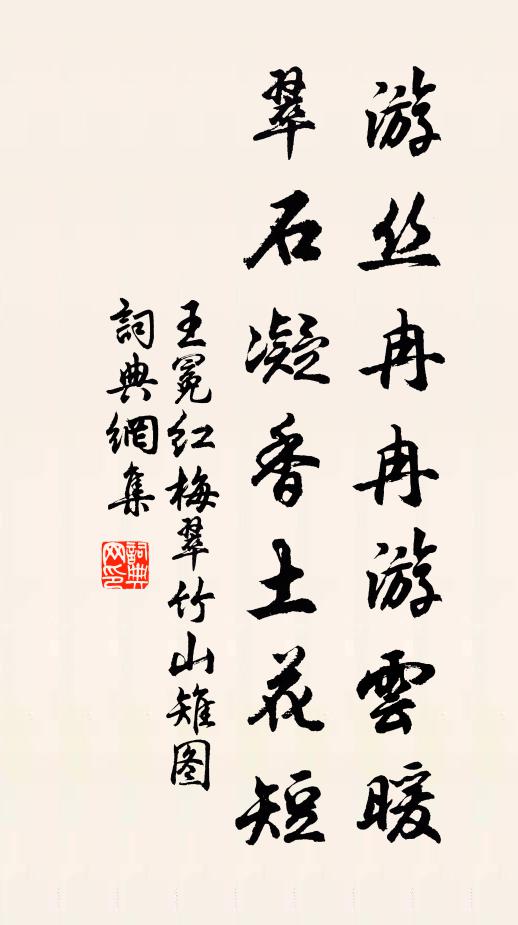 游丝冉冉游雲暖
翠石凝香土花短
王冕红梅翠竹山雉图
詞典網集
詞典網印